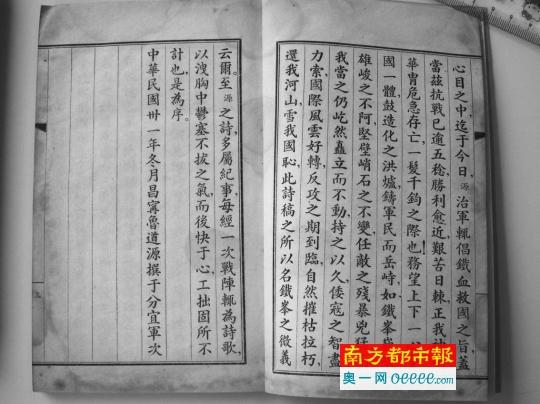 心目之中,迄于今日,源治軍輒倡鐵血救國之旨,蓋
當茲抗戰已逾五稔,勝利愈近,艱苦日棘,正我
華冑危急存亡,一髮千鈞之際也,務望上下一
國一體,鼓造化之洪爐,鑄軍民而岳峙,如鐵峯
雄峻之不阿,堅壁峭石之不變,任敵之殘暴兇猛,
我當之仍屹然矗立而不動,持之以久,倭寇之智盡
力索,國際風雲好轉,反攻之期到臨,自然摧枯拉朽,
還我河山,雪我國恥,此詩稿之所以名鐵峯之微義
云爾。至源之詩,多屬紀事,每經一次戰陣,輒為詩歌,
以洩胸中鬱塞不拔之氣,而後快于心,工拙固所不
計也,是為序。
中華民國卅一年冬月昌寧魯道源撰于分宜軍次
南方都市報
奧一网 oeeee.com